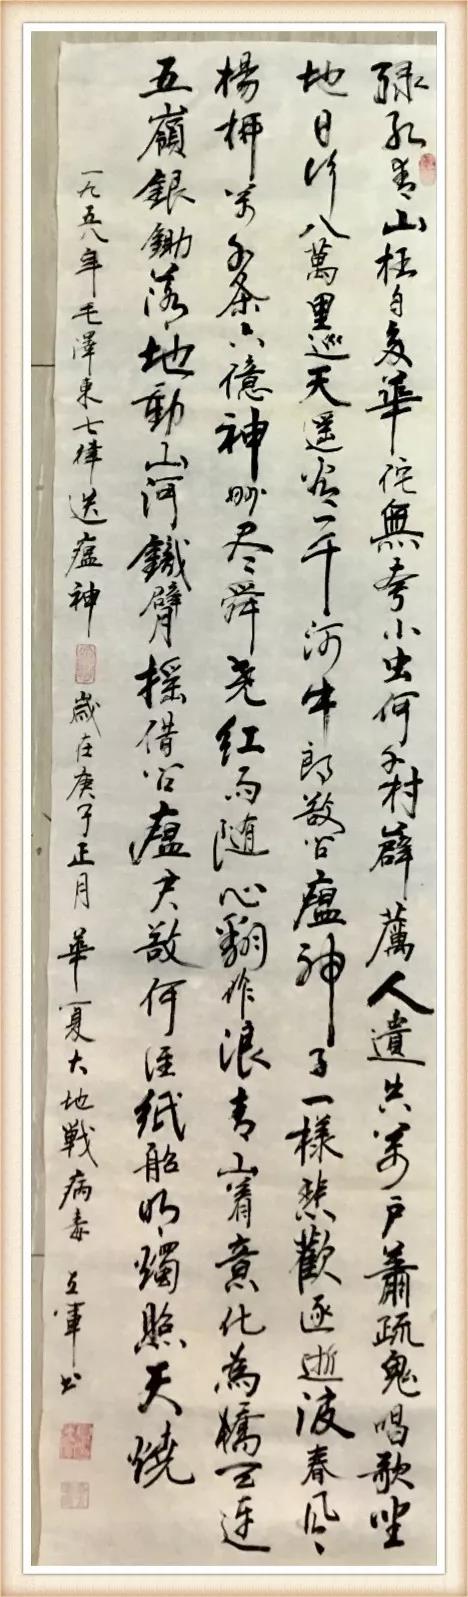 緑水青山枉自多華佗無奈小虫何千村薜厲人遺矢萬户蕭疏鬼唱歌坐
地日行八萬里巡天遥看一千河牛郎欲问瘟神事一樣悲歡逐逝波春风
楊柳萬千条六億神州尽舜尭红雨随心翻作浪青山着意化為橋天連
五嶺銀鋤落地動山河鐵臂摇借问瘟君欲何往紙船明燭照天燒
一九五八年毛澤東七律送瘟神 歲在庚子正月 華夏大地戰病毒 立軍书